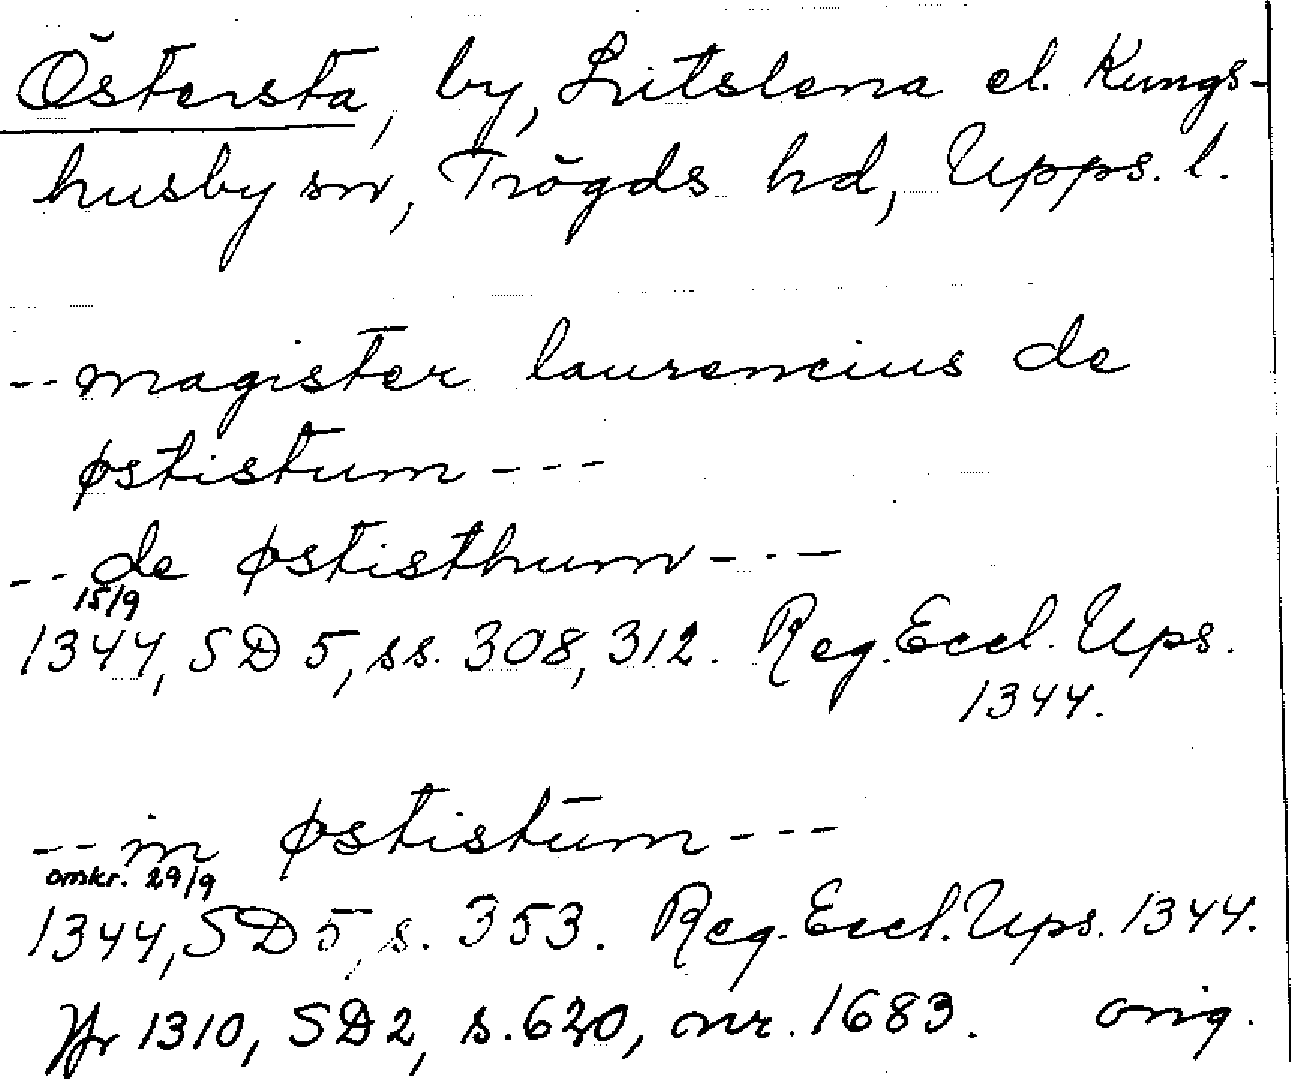 Östersta, by, Litslena el. Kungs-
husby sn, Trögds hd, Upps. l.
-- magister laurencius de
østistum ---
-- de østisthum ---
15/9
1344, SD 5, ss. 308, 312. Reg. Eccl. Ups.
1344.
-- in østistum ---
omkr. 29/9
1344, SD 5, s. 353. Reg. Eccl. Ups. 1344.
Jfr 1310, SD 2, s. 620, nr. 1683. orig.